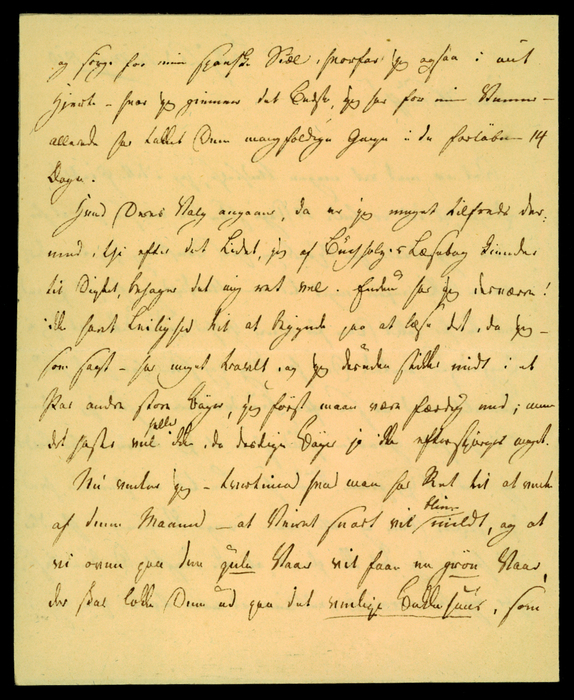 og sørge for min syge Siæl, hvorfor jeg ogsaa i mit
Hjerte – hvor jeg gjemmer det Bedste, jeg har for min Kummer –
allerede har takket Dem mangfoldige Gange i de forløbne 14
Dage.
Hvad Deres Valg angaaer, da er jeg meget tilfreds der-
med, thi efter det Lidet, jeg af Buchholz's Læsebog kiender
til Digtet, behager det mig ret vel. Endnu har jeg desværre!
ikke havt Leilighed til at begynde paa at læse det, da jeg –
som sagt – har meget travlt, og jeg desuden stikker midt i et
Par andre store Bøger, jeg først maa være færdig med; men
det haster vel heller ikke, da deslige Bøger jo ikke efterspørges meget.
Nu venter jeg – hvad man har Ret til at vente
af denne Maaned – at Veiret snart vil blive mildt, og at
vi oven paa den gule Vaar vil faae en grøn Vaar,
der skal lokke Dem ud paa det venlige Bakkehuus, som